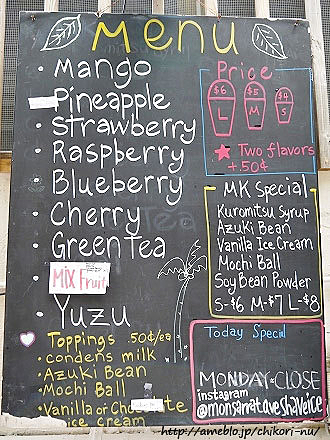 Menu
Mango
Pineapple
Strawberry
Raspberry
Blueberry
Cherry
Green Tea
MIX Fruit
Yuzu
Toppings .50¢/ea
condens milk
Azuki Bean
Mochi Ball
Vanilla or Chocolate
ice cream
Price
$6 $5 $4
L M S
Two flavors
+50¢
MK Special
Kuromitsu Syrup
Azuki Bean
Vanilla Ice Cream
Mochi Ball
Soy Bean Powder
S-$6 M-$7 L-$8
Today Special
MONDAY-CLOSE
instagram
@monsarrataveshaveice
http://ameblo.jp/chikori-nu/